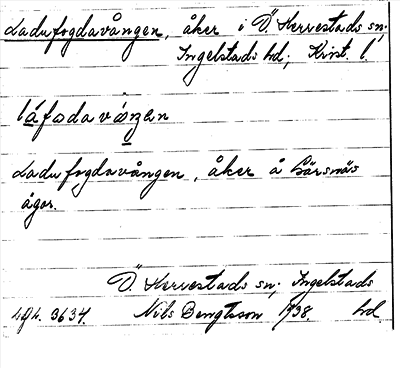 Ladufogdavången, åker i Ö. Herrestads sn;
Ingelstads hd; Krist. l.
låfədavåŋən
Ladufogdavången, åker å Gärsnäs
ägor.
Ö. Herrestads sn; Ingelstads
hd
Nils Bengtsson 1938.
3634